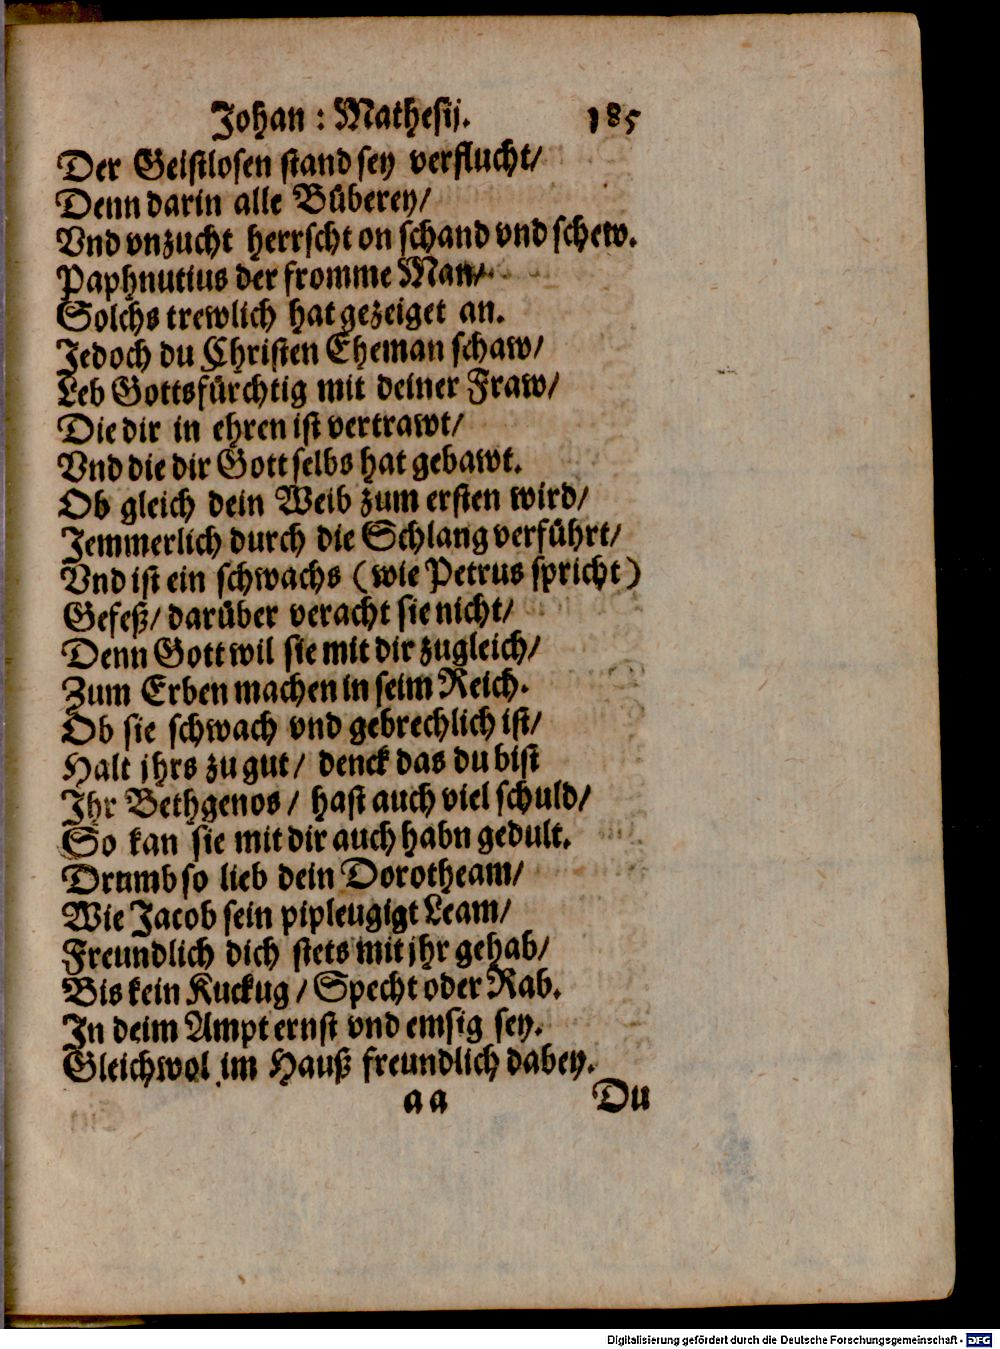 Johan: Mathesij. 185
Der Geistlosen stand sey verflucht/
Denn darin alle Büberey/
Vnd vnzucht herrscht on schand vnd schew.
Paphnutius der fromme Man/
Solchs trewlich hat gezeiget an.
Jedoch du Christen Eheman schaw/
Leb Gottsfürchtig mit deiner Fraw/
Die dir in ehren ist vertrawt/
Vnd die dir Gott selbs hat gebawt.
Ob gleich dein Weib zum ersten wird/
Jemmerlich durch die Schlang verführt/
Vnd ist ein schwachs (wie Petrus spricht)
Gefeß/ darüber veracht sie nicht/
Denn Gott wil sie mit dir zugleich/
Zum Erben machen in seim Reich.
Ob sie schwach vnd gebrechlich ist/
Halt jhrs zu gut/ denck das du bist
Ihr Bethgenos/ hast auch viel schuld/
So kan sie mit dir auch habn gedult.
Drumb so lieb dein Dorotheam/
Wie Jacob sein pipleugigt Leam/
Freundlich dich stets mit jhr gehab/
Bis kein Kuckug/ Specht oder Rab.
In deim Ampt ernst vnd emsig sey.
Gleichwol im Hauß freundlich dabey.
aa Du
Digitalisierung gefördert durch die Deutsche Forschungsgemeinschaft - DFG